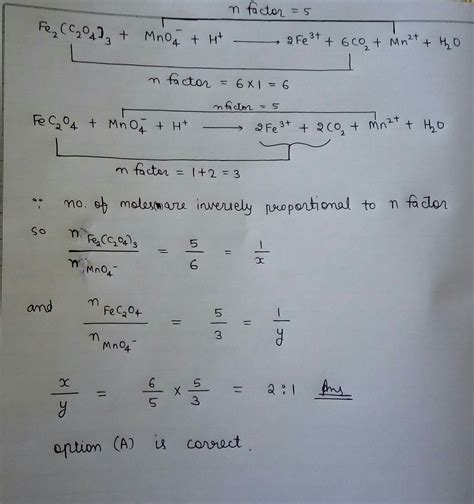 n factor = 5
Fe₂(C₂O₄)₃ + MnO₄⁻ + H⁺ ⟶ 2Fe³⁺ + 6CO₂ + Mn²⁺ + H₂O
n factor = 6×1 = 6
nfactor = 5
FeC₂O₄ + MnO₄⁻ + H⁺ ⟶ 2Fe³⁺ + 2CO₂ + Mn²⁺ + H₂O
n factor = 1+2 = 3
∵ no. of moles are inversely proportional to n factor
so n Fe₂(C₂O₄)₃ / n MnO₄⁻ = 5/6 = 1/x
and n FeC₂O₄ / n MnO₄⁻ = 5/3 = 1/y
x/y = 6/5 × 5/3 = 2:1 Ans
option (A) is correct.